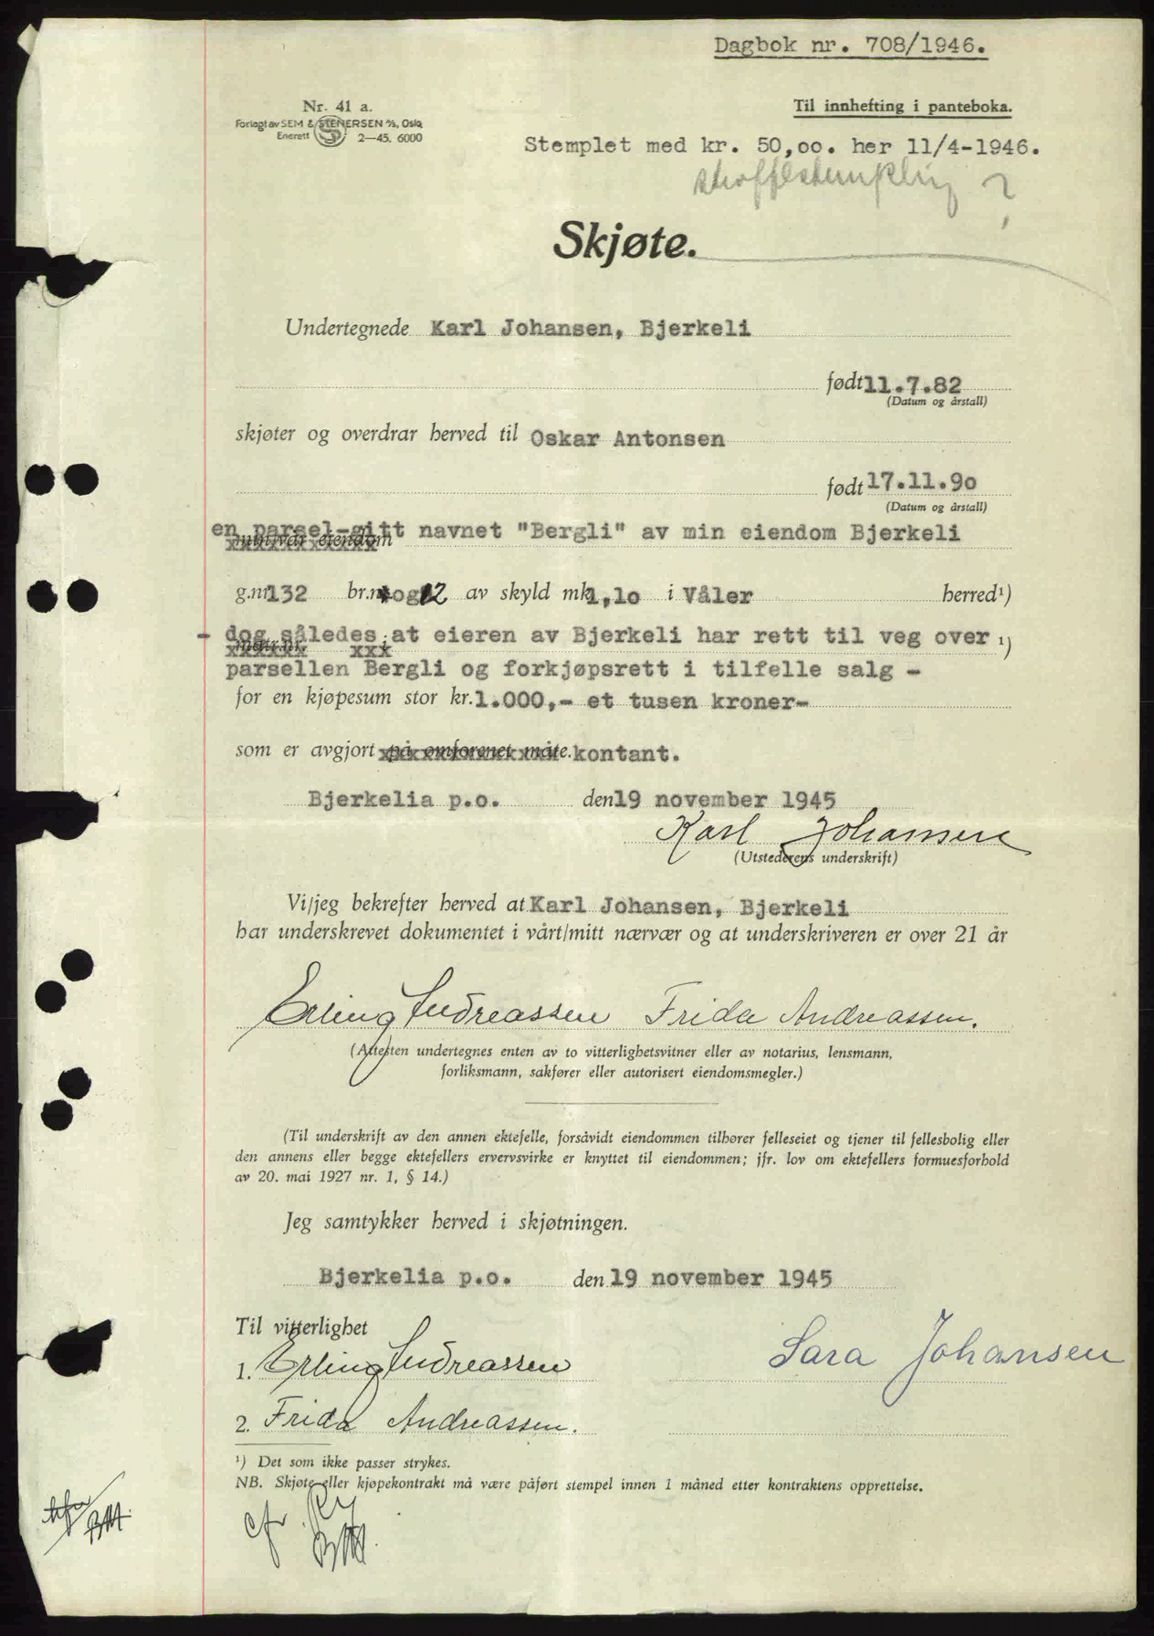 Dagbok nr. 708/1946.
Nr. 41 a.
Til innhefting i panteboka.
Forlagt av SEM & STENERSEN A/S, Oslo
Enerett 2—45. 6000
Stemplet med kr. 50,oo. her 11/4-1946.
straffestempling ?
Skjøte.
Undertegnede Karl Johansen, Bjerkeli
født 11.7.82
(Datum og årstall)
skjøter og overdrar herved til Oskar Antonsen
født 17.11.9o
(Datum og årstall)
en parsel-gitt navnet "Bergli" av min eiendom Bjerkeli
min/vår eiendom
g.nr. 132 br.nr. og 12 av skyld mk. 1,1o i Våler herred¹)
- dog således at eieren av Bjerkeli har rett til veg over ¹)
matr.nr. i
parsellen Bergli og forkjøpsrett i tilfelle salg -
for en kjøpesum stor kr. 1.000,- et tusen kroner-
som er avgjort på omforenet måte. kontant.
Bjerkelia p.o. den 19 november 1945
Karl Johansen
(Utstederens underskrift)
Vi/jeg bekrefter herved at Karl Johansen, Bjerkeli
har underskrevet dokumentet i vårt/mitt nærvær og at underskriveren er over 21 år
Erling Andreassen Frida Andreassen.
(Attesten undertegnes enten av to vitterlighetsvitner eller av notarius, lensmann,
forliksmann, sakfører eller autorisert eiendomsmegler.)
(Til underskrift av den annen ektefelle, forsåvidt eiendommen tilhører felleseiet og tjener til fellesbolig eller
den annens eller begge ektefellers ervervsvirke er knyttet til eiendommen; jfr. lov om ektefellers formuesforhold
av 20. mai 1927 nr. 1, § 14.)
Jeg samtykker herved i skjøtningen.
Bjerkelia p.o. den 19 november 1945
Til vitterlighet
1. Erling Andreassen Sara Johansen
2. Frida Andreassen.
¹) Det som ikke passer strykes.
NB. Skjøte eller kjøpekontrakt må være påført stempel innen 1 måned etter kontraktens opprettelse.